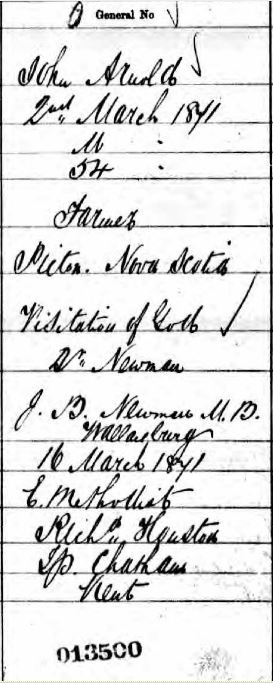 General No
John Arnold
2nd March 1871
M
54
Farmer
Picton. Nova Scotia
Visitation of God
Dr. Newman
J. B. Newman M.D.
Wallaceburg
16 March 1871
E. Methodist
Richd Houston
Tp. Chatham
Kent
013500